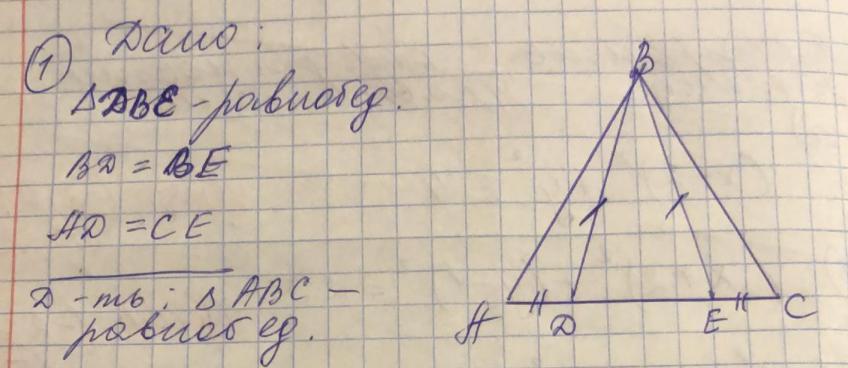 1 Дано:
△DBE - равнобед.
BD = BE
AD = CE
Д-ть: △ABC —
равнобед.
B
A D E C